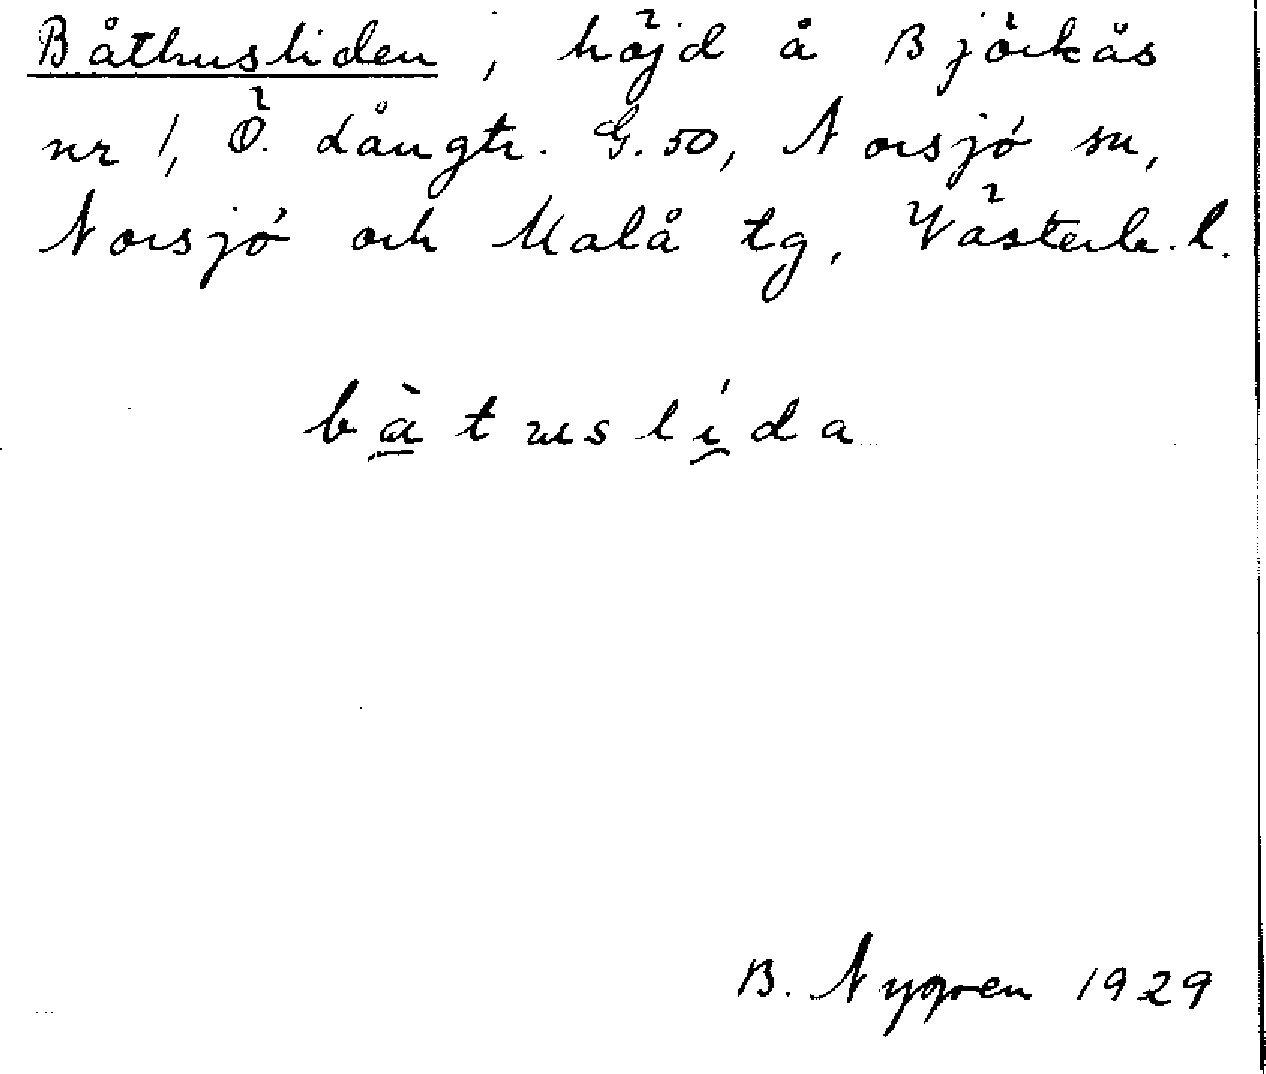 Båthusliden, höjd å Björkås
nr 1, Ö. Långtr. G.50, Norsjö sn,
Norsjö och Malå tg, Västerb.l.
bàtuslída
B. Nygren 1929